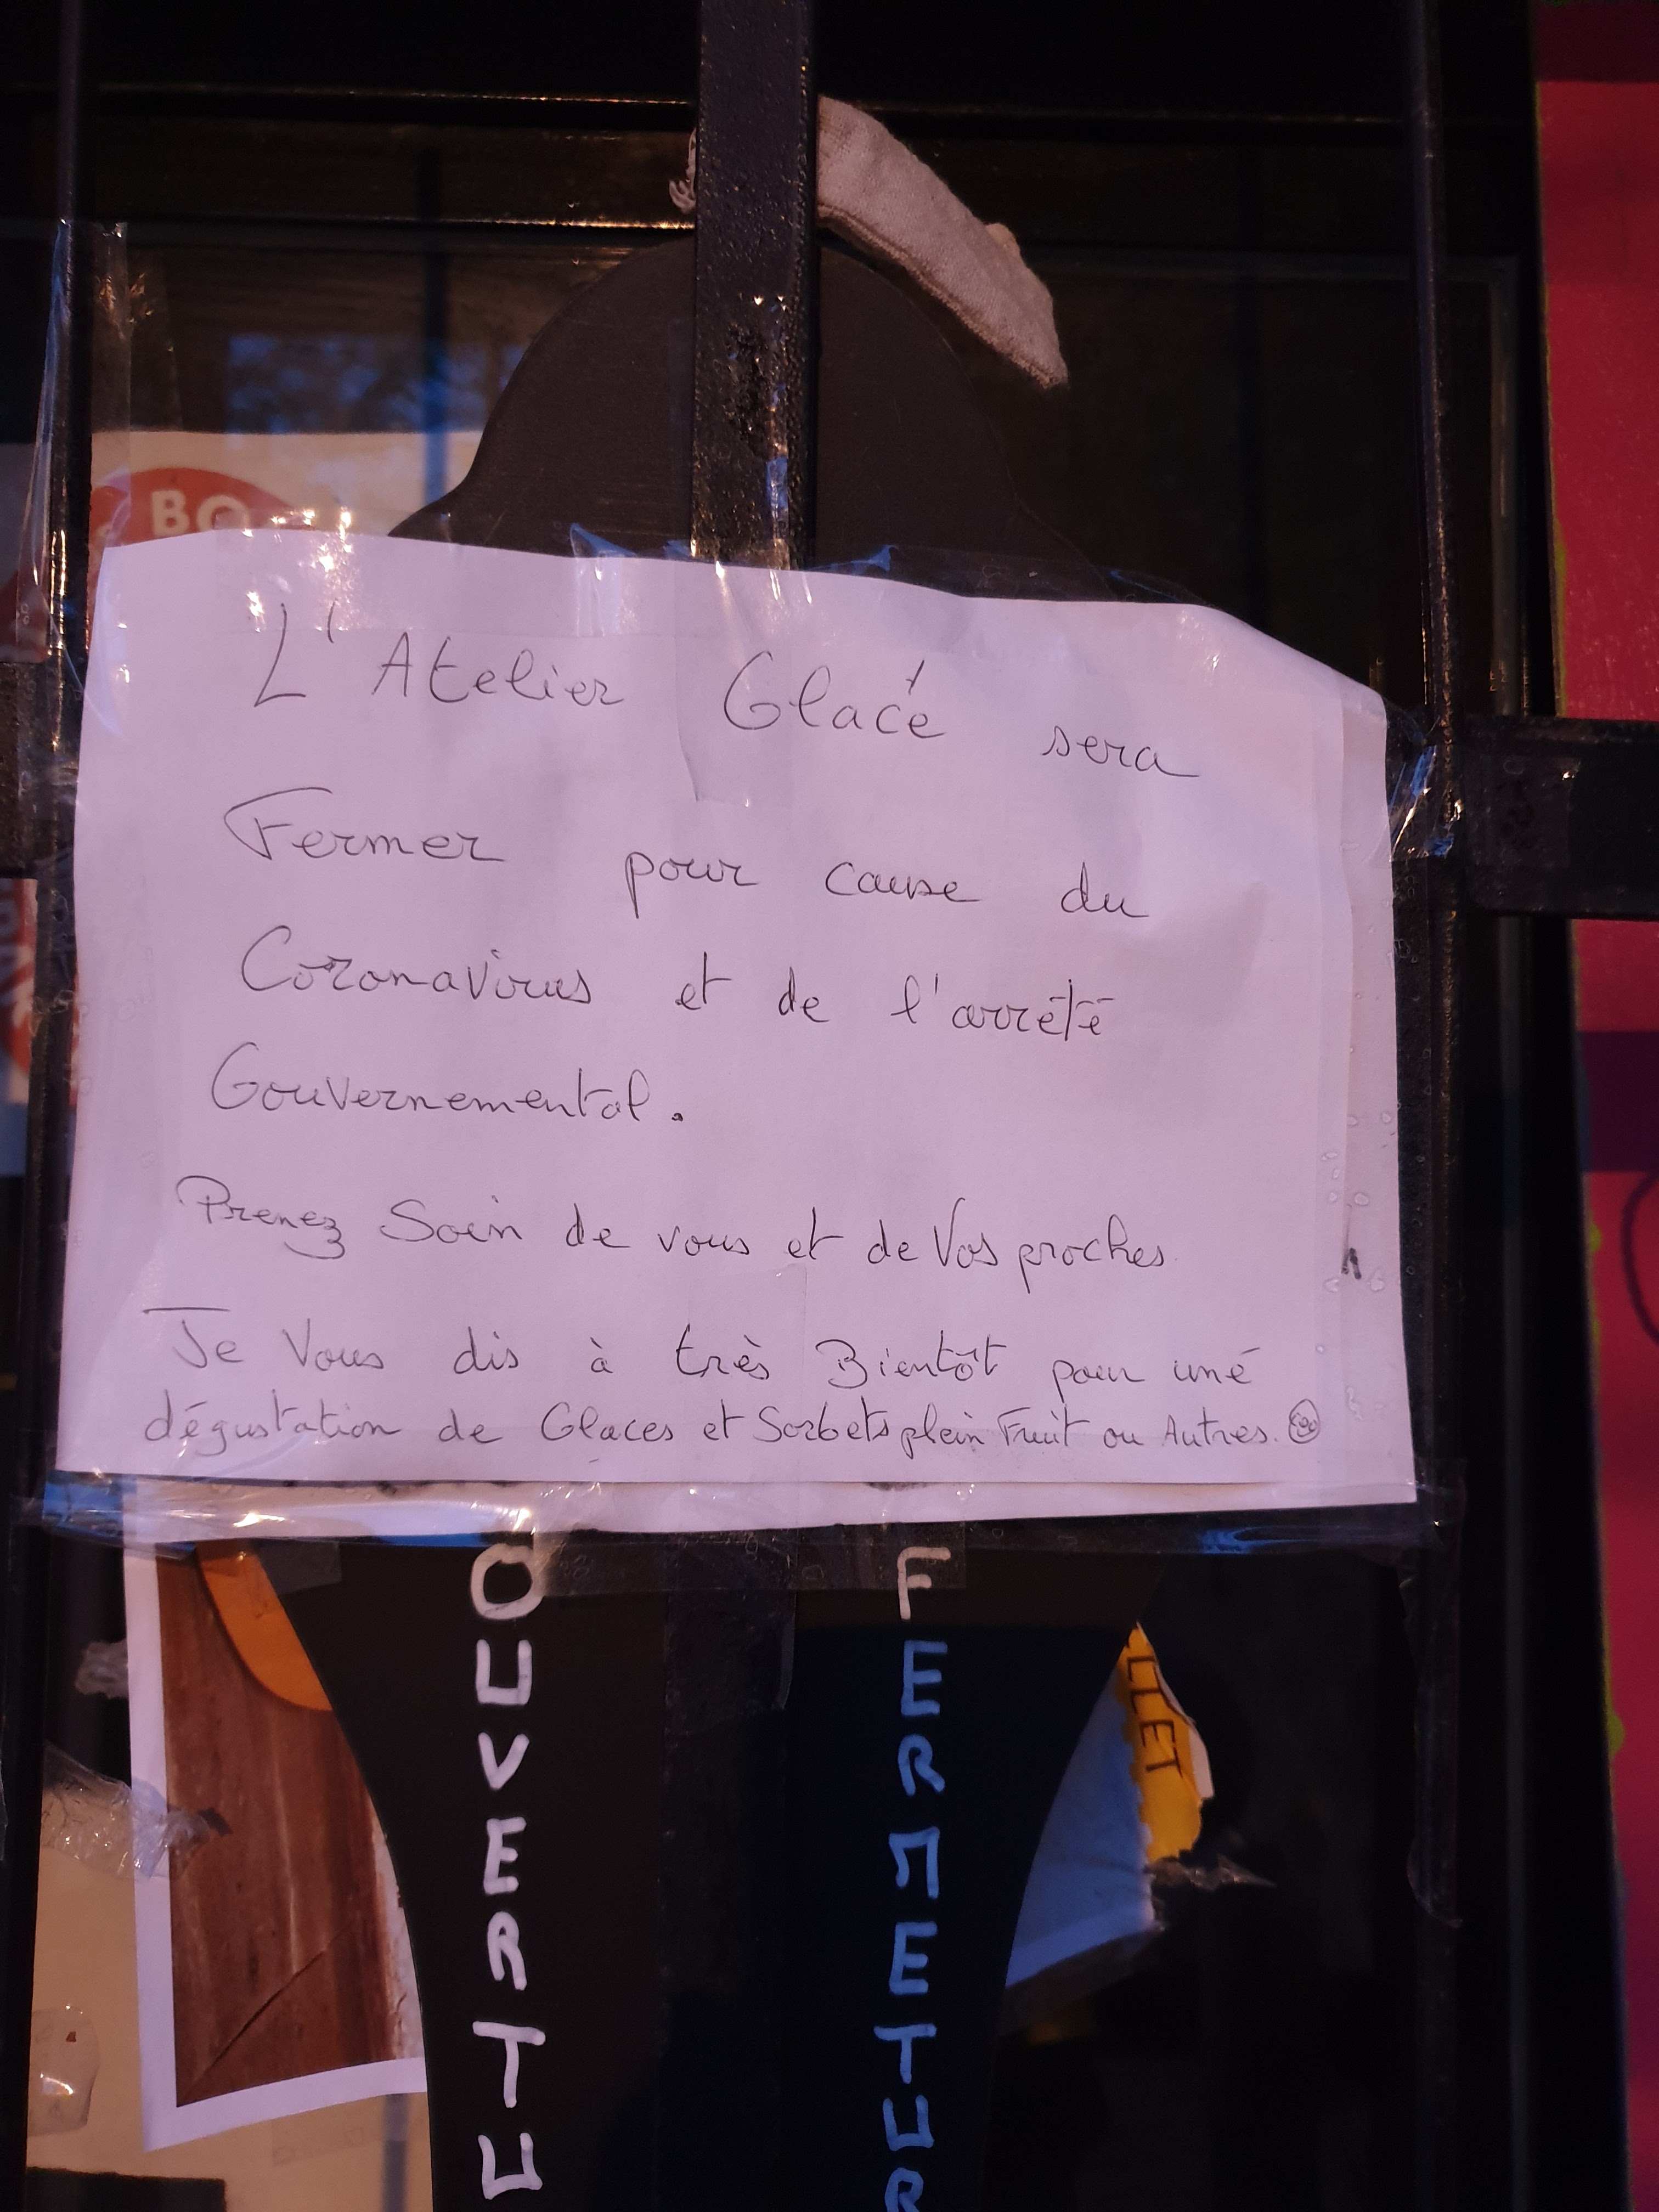 BO
L'Atelier Glacé sera
Fermer pour cause du
Coronavirus et de l'arrêté
Gouvernemental.
Prenez Soin de vous et de Vos proches
Je Vous dis à très Bientôt pour une
dégustation de Glaces et Sorbets plein Fruit ou Autres.
OUVERTU
FERMETUR
LLET